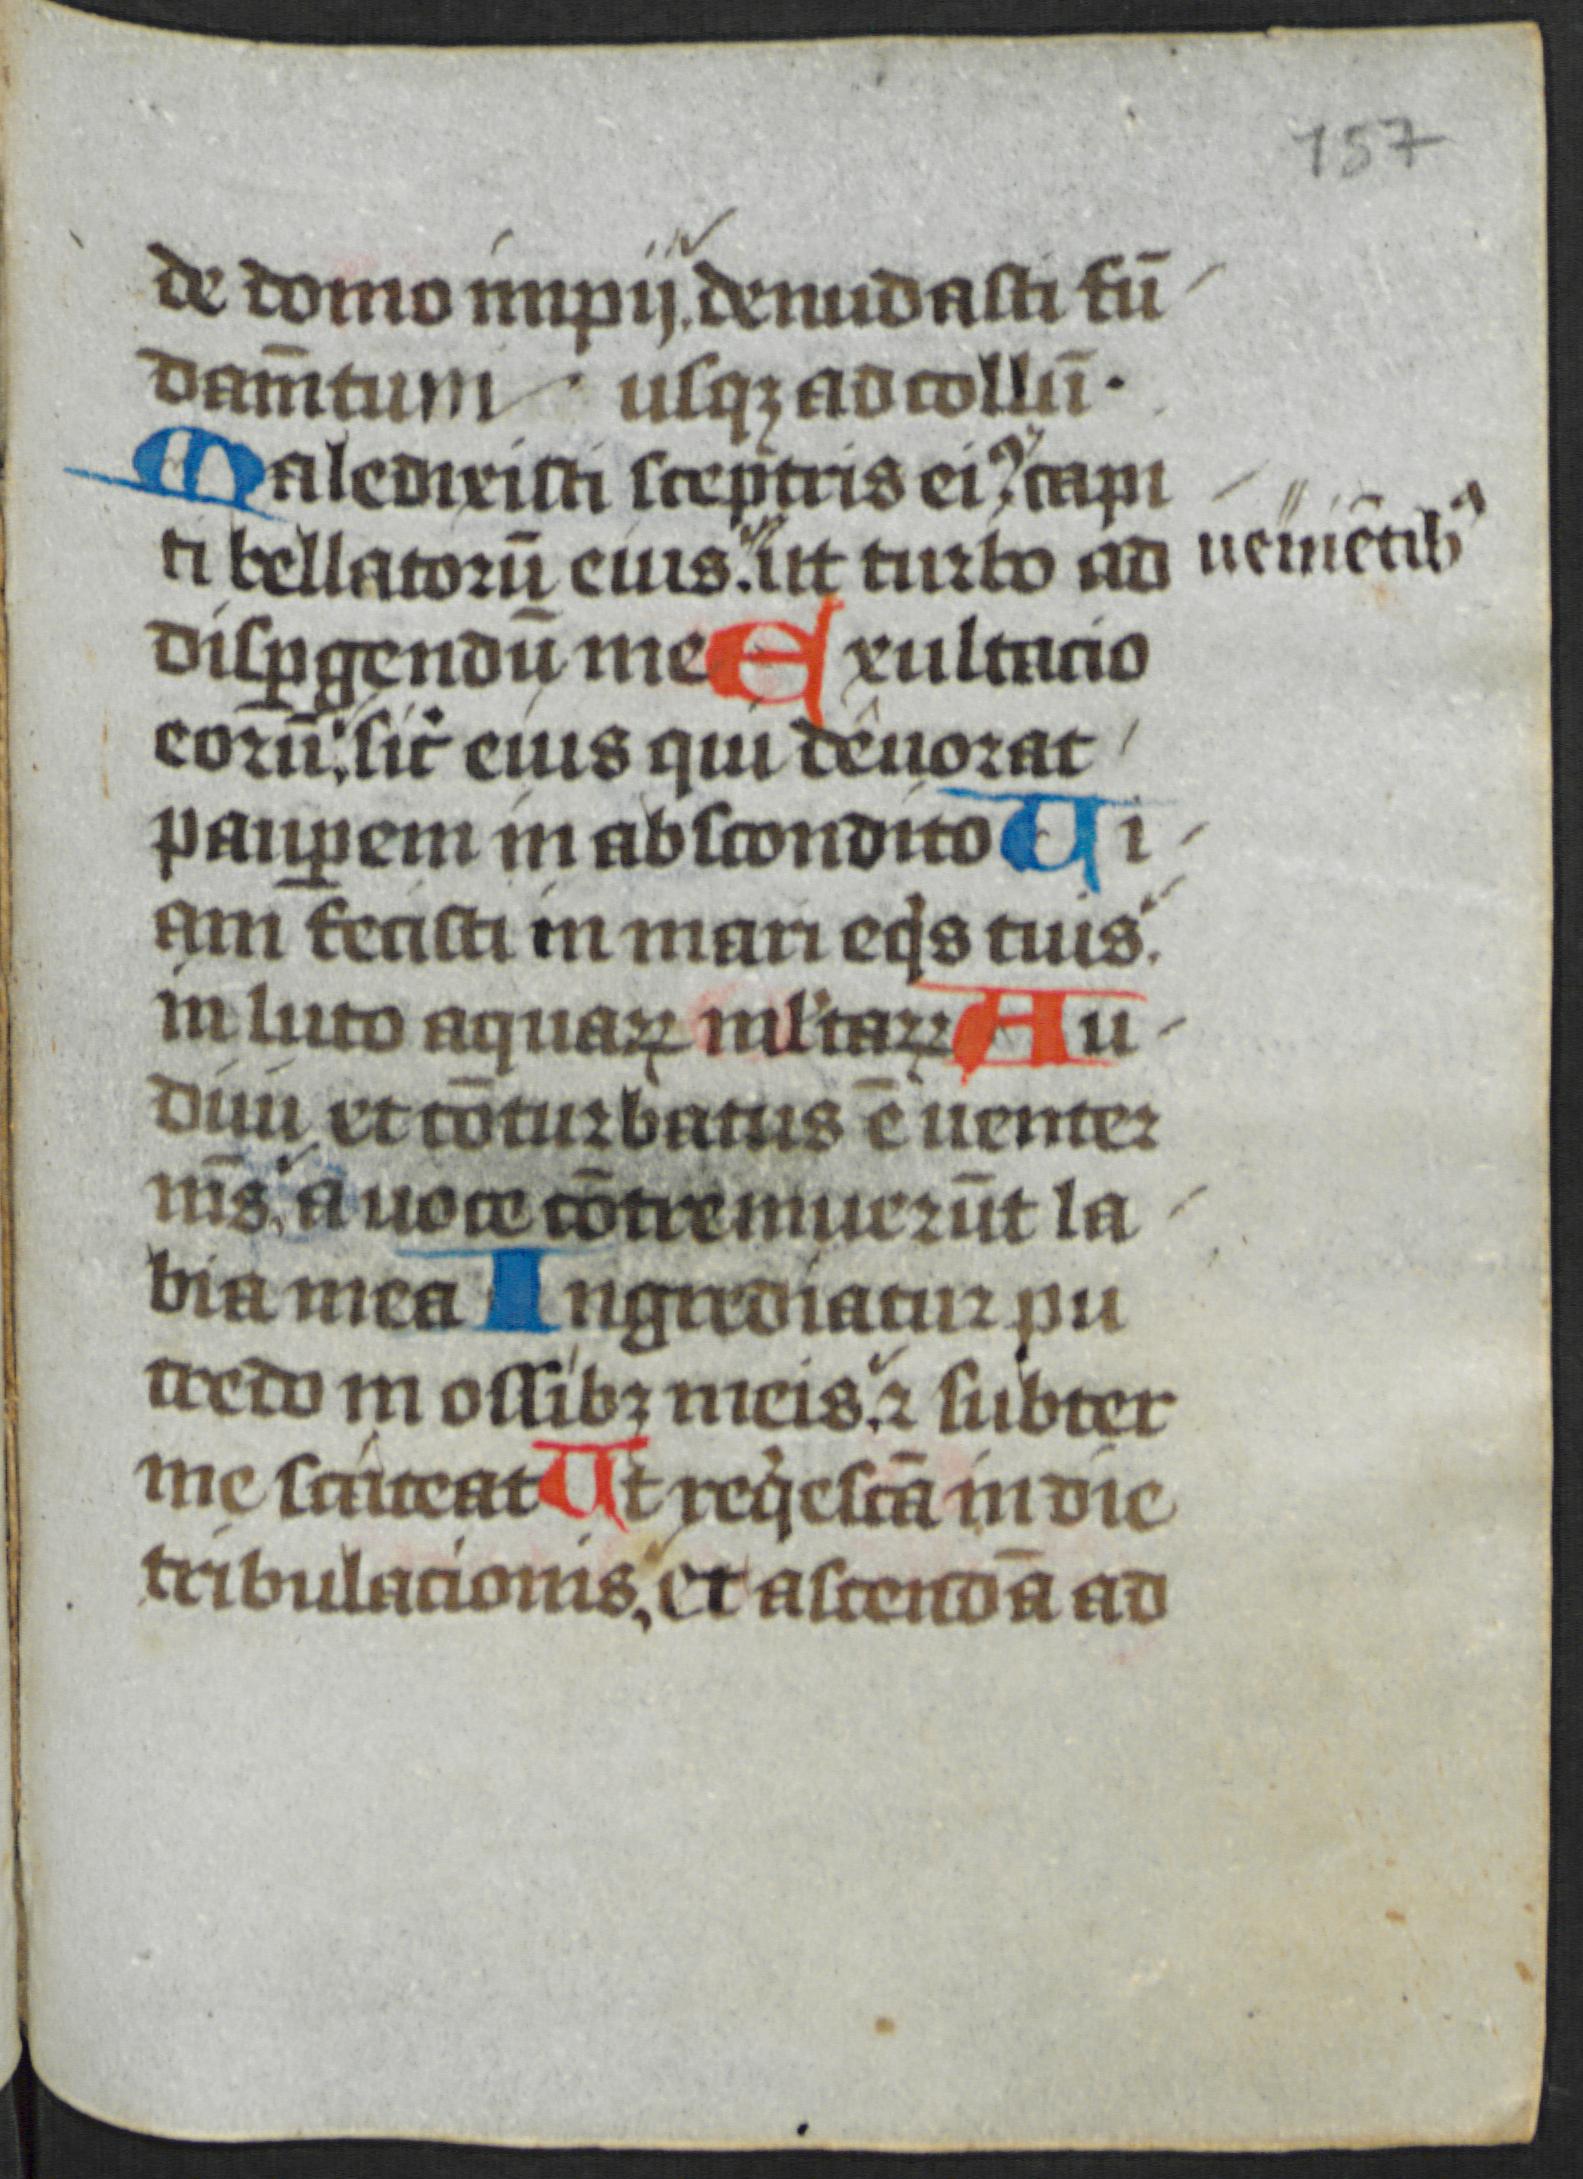 157
de domo impij. denudasti fū
dam̄tum usqꝫ ad collū.
Maledixisti sceptris eiꝰ capi
ti bellatorū eius. ut turbo ad ueniētibꝰ
disꝑgendū me Exultacio
eorū. sic̄ eius qui deuorat
pauꝑem in abscondito Ui
am fecisti in mari eqⁱs tuis.
in luto aquaꝝ ml̓taꝝ Au
diui et cōturbatus ē uenter
m̄s. a uoce cōtremuerūt la
bia mea Ingrediatur pu
tredo in ossibꝫ meis. ⁊ subter
me scateat Ut reqⁱescā in die
tribulacionis, et ascendā ad